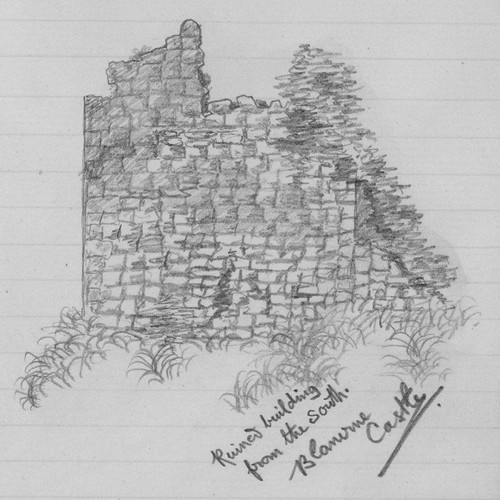 Ruined building
from the South.
Blanerne Castle.